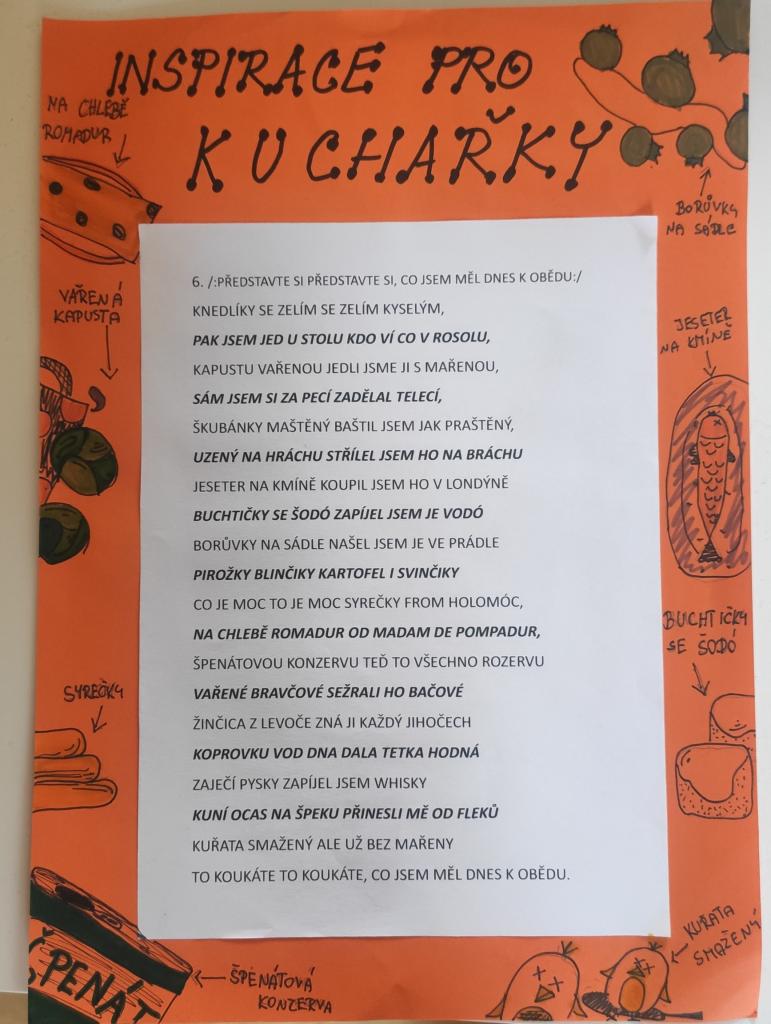 INSPIRACE PRO
KUCHAŘKY
NA CHLEBĚ
ROMADUR
BORŮVKY
NA SÁDLE
VAŘENÁ
KAPUSTA
JESETER
NA KMÍNĚ
6. /:PŘEDSTAVTE SI PŘEDSTAVTE SI, CO JSEM MĚL DNES K OBĚDU:/
KNEDLÍKY SE ZELÍM SE ZELÍM KYSELÝM,
PAK JSEM JED U STOLU KDO VÍ CO V ROSOLU,
KAPUSTU VAŘENOU JEDLI JSME JI S MAŘENOU,
SÁM JSEM SI ZA PECÍ ZADĚLAL TELECÍ,
ŠKUBÁNKY MAŠTĚNÝ BAŠTIL JSEM JAK PRAŠTĚNÝ,
UZENÝ NA HRÁCHU STŘÍLEL JSEM HO NA BRÁCHU
JESETER NA KMÍNĚ KOUPIL JSEM HO V LONDÝNĚ
BUCHTIČKY SE ŠODÓ ZAPÍJEL JSEM JE VODÓ
BORŮVKY NA SÁDLE NAŠEL JSEM JE VE PRÁDLE
PIROŽKY BLINČIKY KARTOFEL I SVINČIKY
CO JE MOC TO JE MOC SYREČKY FROM HOLOMÓC,
NA CHLEBĚ ROMADUR OD MADAM DE POMPADUR,
ŠPENÁTOVOU KONZERVU TEĎ TO VŠECHNO ROZERVU
VAŘENÉ BRAVČOVÉ SEŽRALI HO BAČOVÉ
ŽINČICA Z LEVOČE ZNÁ JI KAŽDÝ JIHOČECH
KOPROVKU VOD DNA DALA TETKA HODNÁ
ZAJEČÍ PYSKY ZAPÍJEL JSEM WHISKY
KUNÍ OCAS NA ŠPEKU PŘINESLI MĚ OD FLEKŮ
KUŘATA SMAŽENÝ ALE UŽ BEZ MAŘENY
TO KOUKÁTE TO KOUKÁTE, CO JSEM MĚL DNES K OBĚDU.
BUCHTIČKY
SE ŠODÓ
SYREČKY
ŠPENÁT
ŠPENÁTOVÁ
KONZERVA
KUŘATA
SMAŽENÝ